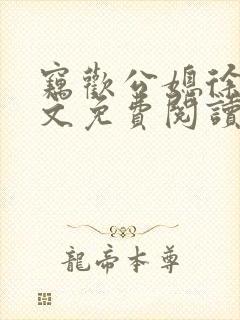 竊歡公媳徐
文免費閱讀
龍帝本尊